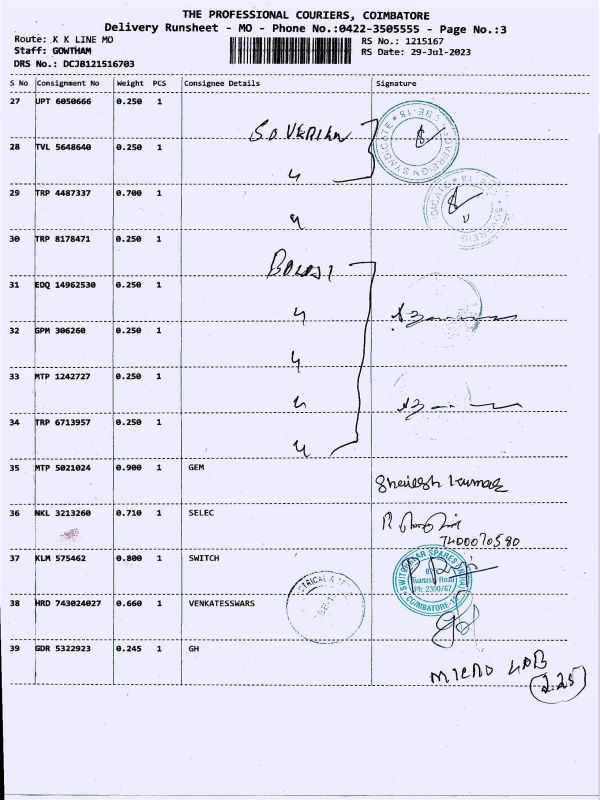 THE PROFESSIONAL COURIERS, COIMBATORE
Delivery Runsheet - MO - Phone No.:0422-3505555 - Page No.:3
Route: K K LINE MO
RS No.: 1215167
Staff: GOWTHAM
RS Date: 29-Jul-2023
DRS No.: DCJB121516703
S No Consignment No Weight PCS Consignee Details Signature
27 UPT 6050666 0.250 1
28 TVL 5648640 0.250 1
29 TRP 4487337 0.700 1
30 TRP 8178471 0.250 1
31 EDQ 14962530 0.250 1
32 GPM 306260 0.250 1
33 MTP 1242727 0.250 1
34 TRP 6713957 0.250 1
35 MTP 5021024 0.900 1 GEM
36 NKL 3213260 0.710 1 SELEC
7400070580
37 KLM 575462 0.800 1 SWITCH
Ph: 2300767
COIMBATORE-18
38 HRD 743024027 0.660 1 VENKATESSWARS
39 GDR 5322923 0.245 1 GH
MICRO LAB
2.25